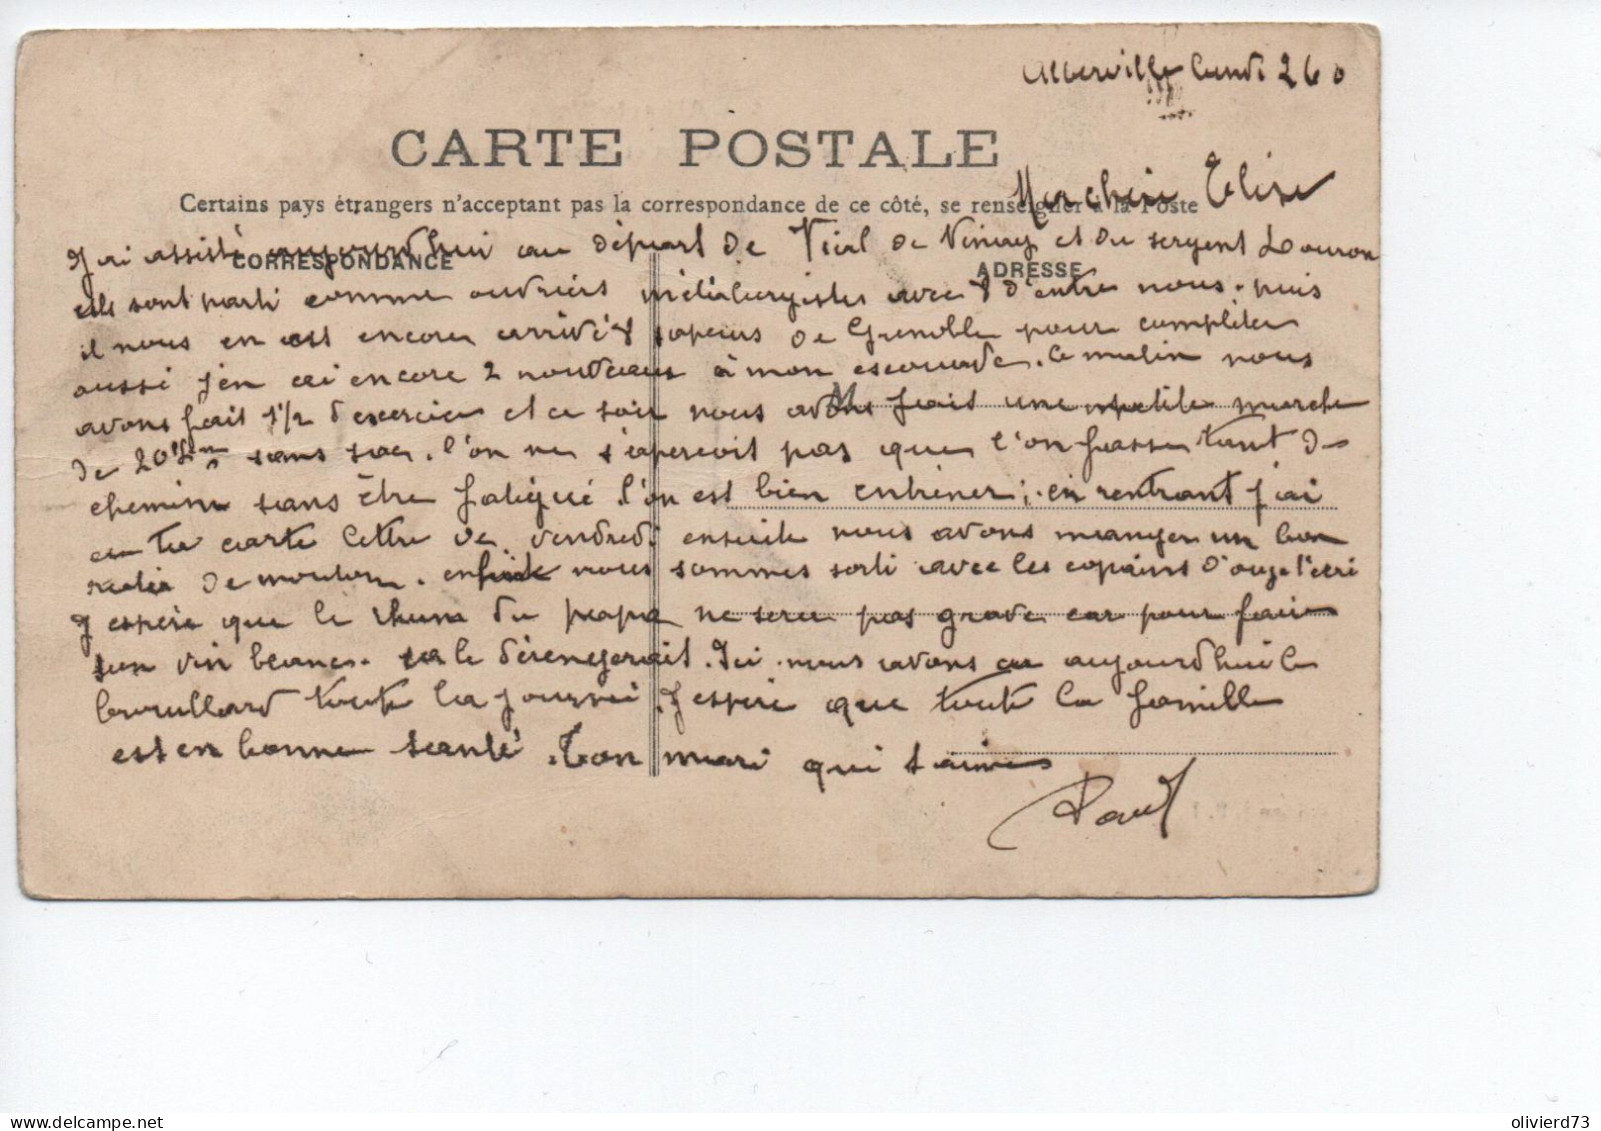 Alberville lundi 26
CARTE POSTALE
Certains pays étrangers n'acceptent pas la correspondance de ce côté, se renseigner à la Poste
Ma chérie Elise
CORRESPONDANCE
ADRESSE
J'ai assisté aujourdhui au départ de Vial de Vinay et du sergent Louron
ils sont parti comme ouvriers métalurgistes avec 8 d'entre nous. puis
il nous en est encore arrivé 8 sapeurs de Grenoble pour compléter
aussi j'en ai encore 2 nouveaux à mon escouade. Ce matin nous
avons fait 1½ d'exercice et ce soir nous avons fait une petite marche
de 20 km sans sac. l'on ne s'aperçoit pas que l'on fasse tant de
chemin sans être fatigué l'on est bien entrener; en rentrant j'ai
eu ta carte lettre de vendredi ensuite nous avons manger un bon
de mouton. ensuite nous sommes sorti avec les copains d'ou je t'écri
J'espère que le rhum du papa ne sera pas grave car pour faire
son vin blanc. sa le dérengerait. Ici nous avons eu aujourdhui le
brouillard toute la journée. J'espère que toute la famille
est en bonne santé. Ton mari qui t'aime
Paul
olivierd73